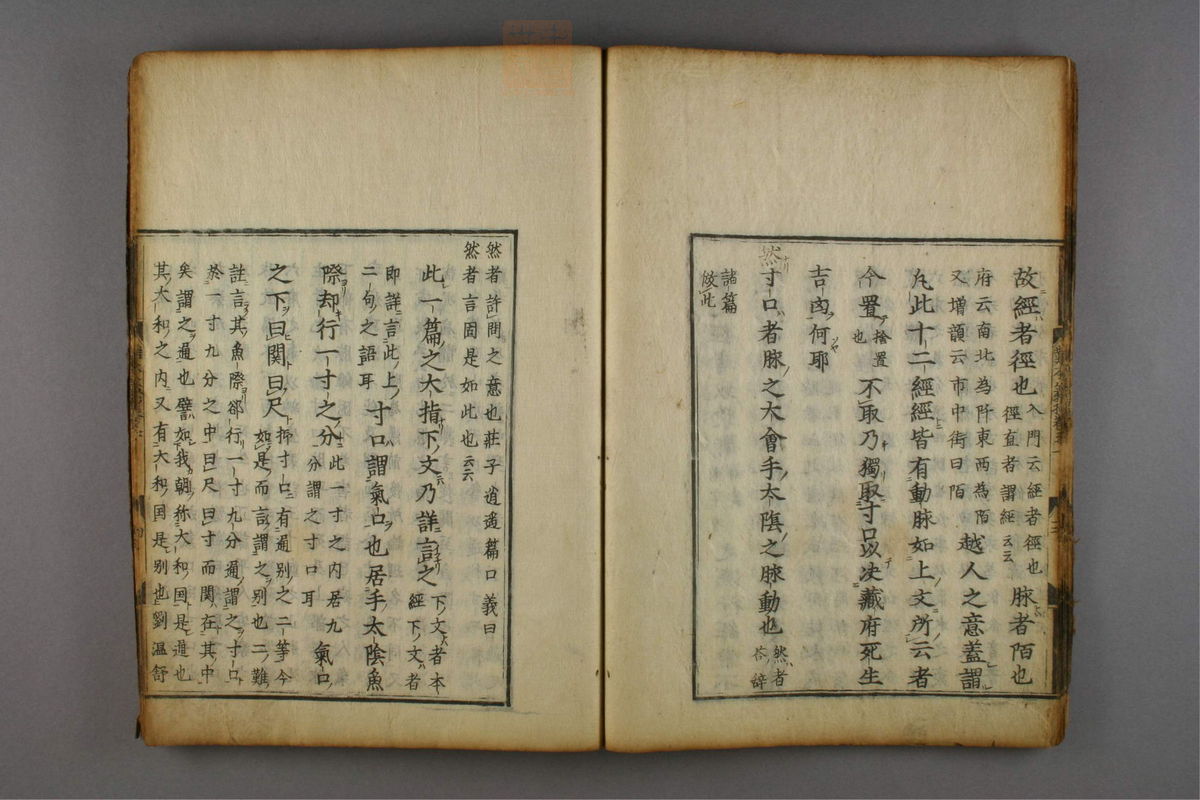 故經者徑也入門云經者徑也徑直者謂經云云脉者陌也
府云南北為阡東西為陌又増韻云市中街曰陌越人之意蓋謂
凡此十二經經皆有動脉如上文所云者
今置捨置也不取乃獨取寸口以决藏府死生
吉凶何耶
然寸口者脉之大會手太陰之脉動也然者荅辞
諸篇倣此
然者許問之意也莊子逍遥篇口義曰
然者言固是如此也云云
此一篇之大指下文乃詳言之下文者本經下文者
即詳言此上二句之語耳寸口謂氣口也居手太陰魚
際却行一寸之分此一寸之内居九分謂之寸口耳氣口
之下曰関曰尺抑寸口有通別之二等今如是而言謂之別也二難
註言其魚際郤行一寸九分通謂之寸口
於一寸九分之中曰尺曰寸而関在其中
矣謂之通也譬如我朝称大和国是通也
其大和之内又有大和国是別也劉温舒